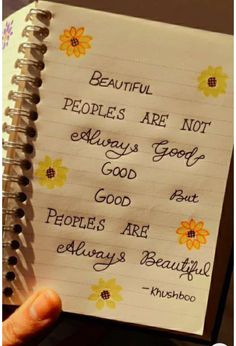 BEAUTIFUL
PEOPLES ARE NOT
Always Good
GOOD But
GOOD
PEOPLES ARE
Always Beautiful
- Khushboo